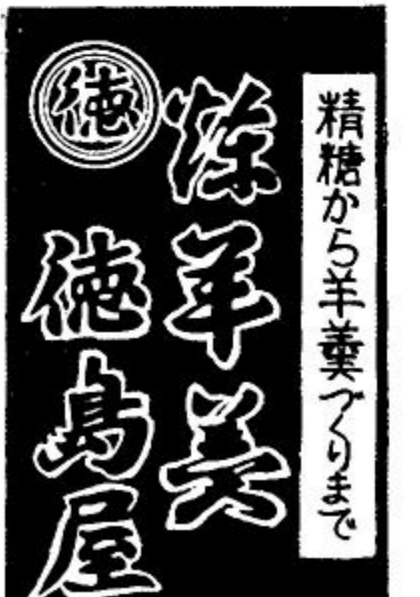 精糖から羊羹づくりまで
煉羊羹
徳
徳島屋